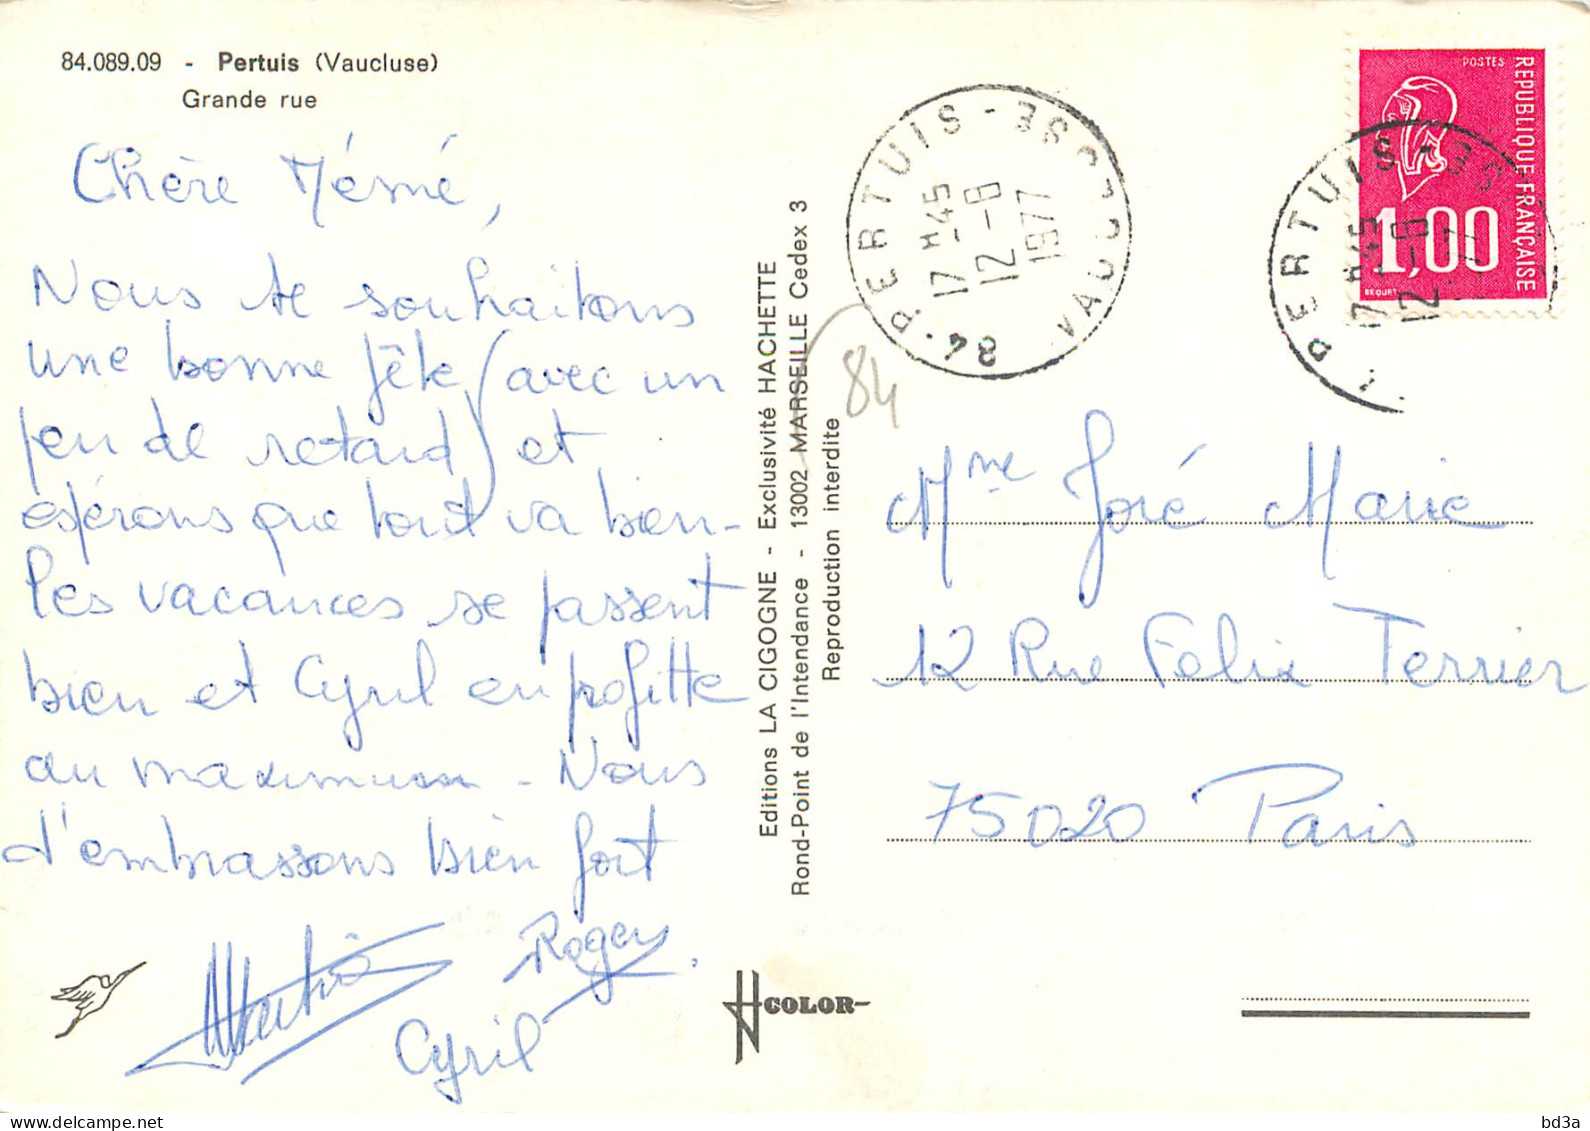 84.089.09 - Pertuis (Vaucluse)
Grande rue
Chère Mémé,
Nous te souhaitons
une bonne fête (avec un
peu de retard) et
espérons que tout va bien -
Les vacances se passent
bien et Cyril en profitte
au maximum - Nous
t'embrassons bien fort
Roger
Cyril
Editions LA CIGOGNE - Exclusivité HACHETTE
Rond-Point de l'Intendance - 13002 MARSEILLE Cedex 3
Reproduction interdite
COLOR
84 · PERTUIS - VAUCLUSE
17 H 45
12 - 8
1977
84
POSTES
REPUBLIQUE FRANÇAISE
1,00
BEQUET
PERTUIS
17 H 45
12 - 8
Mme José Marie
12 Rue Felix Terrier
75020 Paris
bd3a